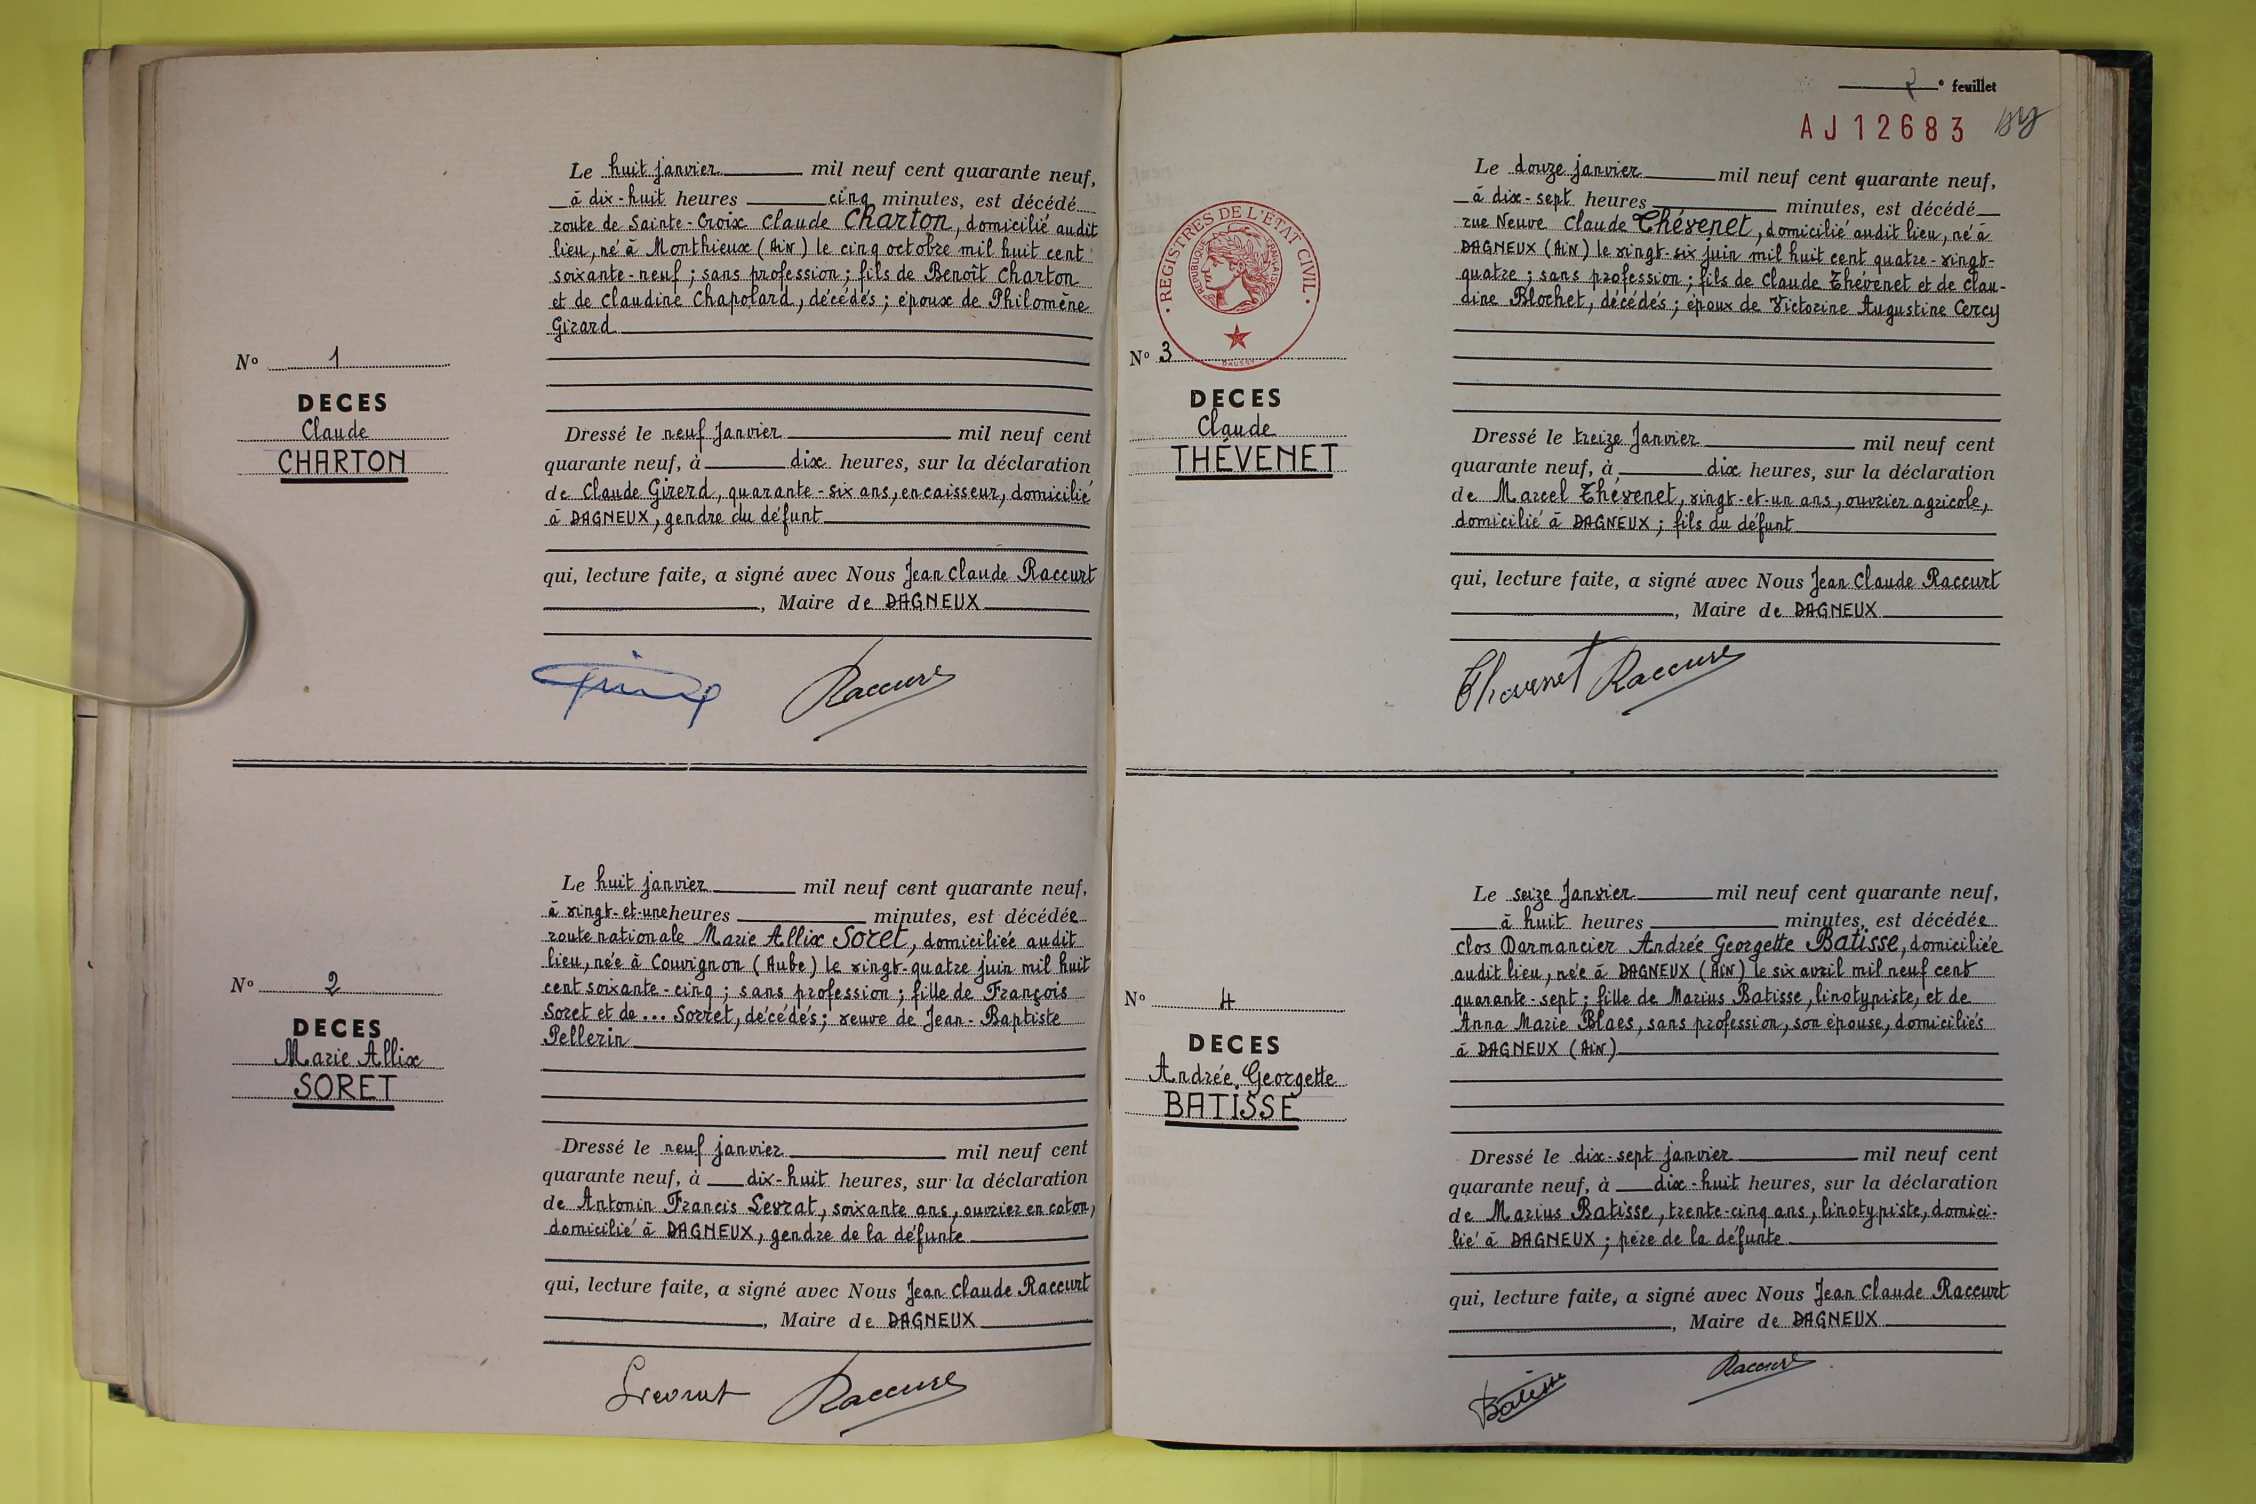 Le huit janvier mil neuf cent quarante neuf,
à dix-huit heures cinq minutes, est décédé
route de Sainte-Croix Claude Charton, domicilié audit
lieu, né à Monthieux (Ain) le cinq octobre mil huit cent
soixante-neuf ; sans profession ; fils de Benoît Charton
et de Claudine Chapolard, décédés ; époux de Philomène
Girard
N° 1
DECES
Claude
CHARTON
Dressé le neuf janvier mil neuf cent
quarante neuf, à dix heures, sur la déclaration
de Claude Girerd, quarante-six ans, encaisseur, domicilié
à DAGNEUX, gendre du défunt
qui, lecture faite, a signé avec Nous Jean Claude Raccurt
, Maire de DAGNEUX
Raccurt
Le huit janvier mil neuf cent quarante neuf,
à vingt-et-une heures minutes, est décédée
route nationale Marie Allix Soret, domiciliée audit
lieu, née à Couvignon (Aube) le vingt-quatre juin mil huit
cent soixante-cinq ; sans profession ; fille de François
Soret et de ... Sorret, décédés ; veuve de Jean-Baptiste
Pellerin
N° 2
DECES
Marie Allix
SORET
Dressé le neuf janvier mil neuf cent
quarante neuf, à dix-huit heures, sur la déclaration
de Antonin Francis Levrat, soixante ans, ouvrier en coton,
domicilié à DAGNEUX, gendre de la défunte
qui, lecture faite, a signé avec Nous Jean Claude Raccurt
, Maire de DAGNEUX
Levrat Raccurt
2° feuillet
AJ12683
Le douze janvier mil neuf cent quarante neuf,
à dix-sept heures minutes, est décédé
rue Neuve Claude Thévenet, domicilié audit lieu, né à
DAGNEUX (AiN) le vingt-six juin mil huit cent quatre-vingt-
quatre ; sans profession ; fils de Claude Thévenet et de Clau-
dine Blochet, décédés ; époux de Victorine Augustine Cercy
REGISTRES DE L'ÉTAT CIVIL
RÉPUBLIQUE FRANÇAISE
N° 3
DECES
Claude
THÉVENET
Dressé le treize janvier mil neuf cent
quarante neuf, à dix heures, sur la déclaration
de Marcel Thévenet, vingt-et-un ans, ouvrier agricole,
domicilié à DAGNEUX ; fils du défunt
qui, lecture faite, a signé avec Nous Jean Claude Raccurt
, Maire de DAGNEUX
Thevenet Raccurt
Le seize janvier mil neuf cent quarante neuf,
à huit heures minutes, est décédée
clos Darmancier Andrée Georgette Batisse, domiciliée
audit lieu, née à DAGNEUX (AiN) le six avril mil neuf cent
quarante-sept ; fille de Marius Batisse, linotypiste, et de
Anna Marie Blaes, sans profession, son épouse, domiciliés
à DAGNEUX (AiN)
N° 4
DECES
Andrée Georgette
BATISSE
Dressé le dix-sept janvier mil neuf cent
quarante neuf, à dix-huit heures, sur la déclaration
de Marius Batisse, trente-cinq ans, linotypiste, domici-
lié à DAGNEUX ; père de la défunte
qui, lecture faite, a signé avec Nous Jean Claude Raccurt
, Maire de DAGNEUX
Batisse Raccurt